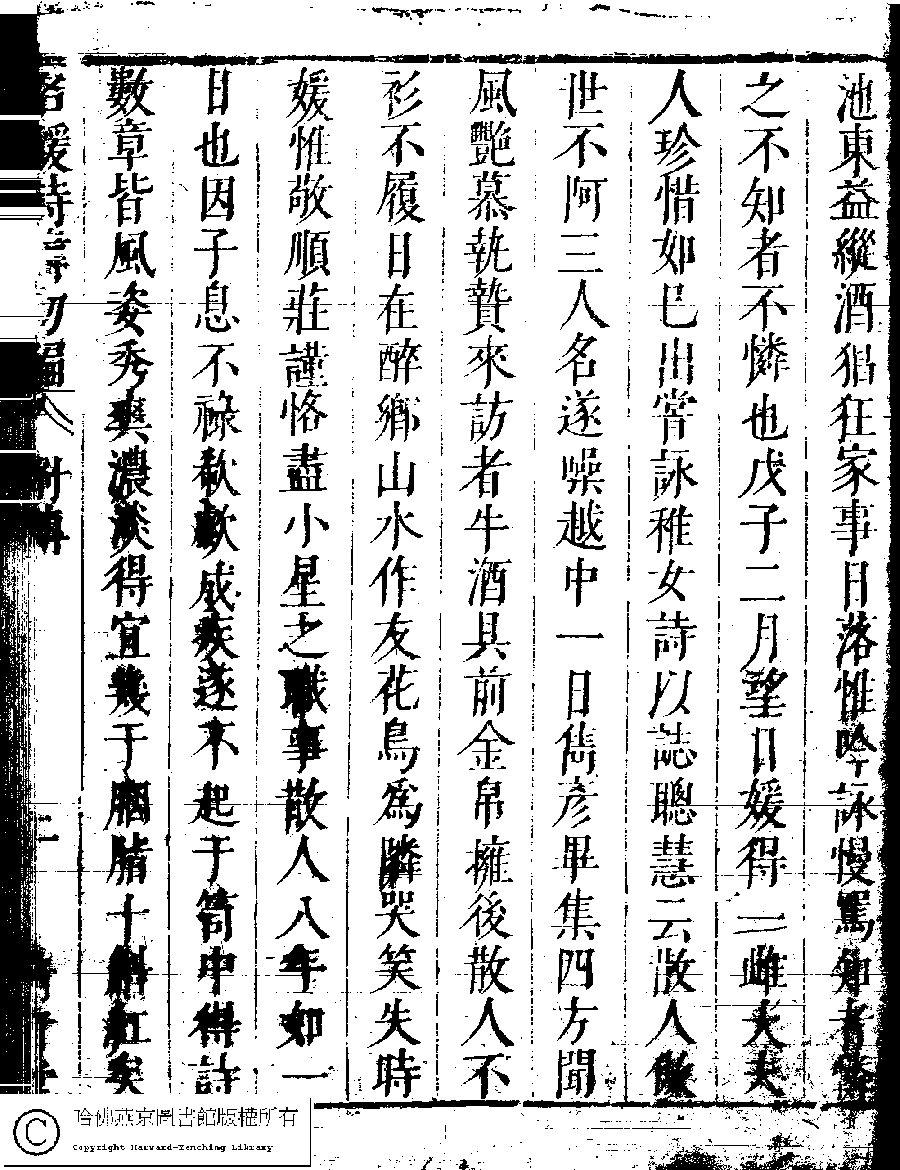 池東益縱酒猖狂家事日落惟吟詠慢罵知者憐
之不知者不憐也戊子二月望日媛得雌夫夫
人珍惜如已出嘗詠稚女詩以誌聰慧云散人傲
世不阿三人名遂噪越中一日雋彥畢集四方聞
風艷慕執贄來訪者牛酒具前金帛擁後散人不
衫不履日在醉鄉山水作友花鳥爲隣哭笑失時
媛惟敬順莊謹恪盡小星之職事散人八年如一
日也因子息不祿欷歔成疾遂不起于笥中得詩
數章皆風姿秀爽濃淡得宜幾于胭脂十斛紅矣
名媛詩緯初編
哈佛燕京圖書館版權所有
Copyright Harvard-Yenching Library